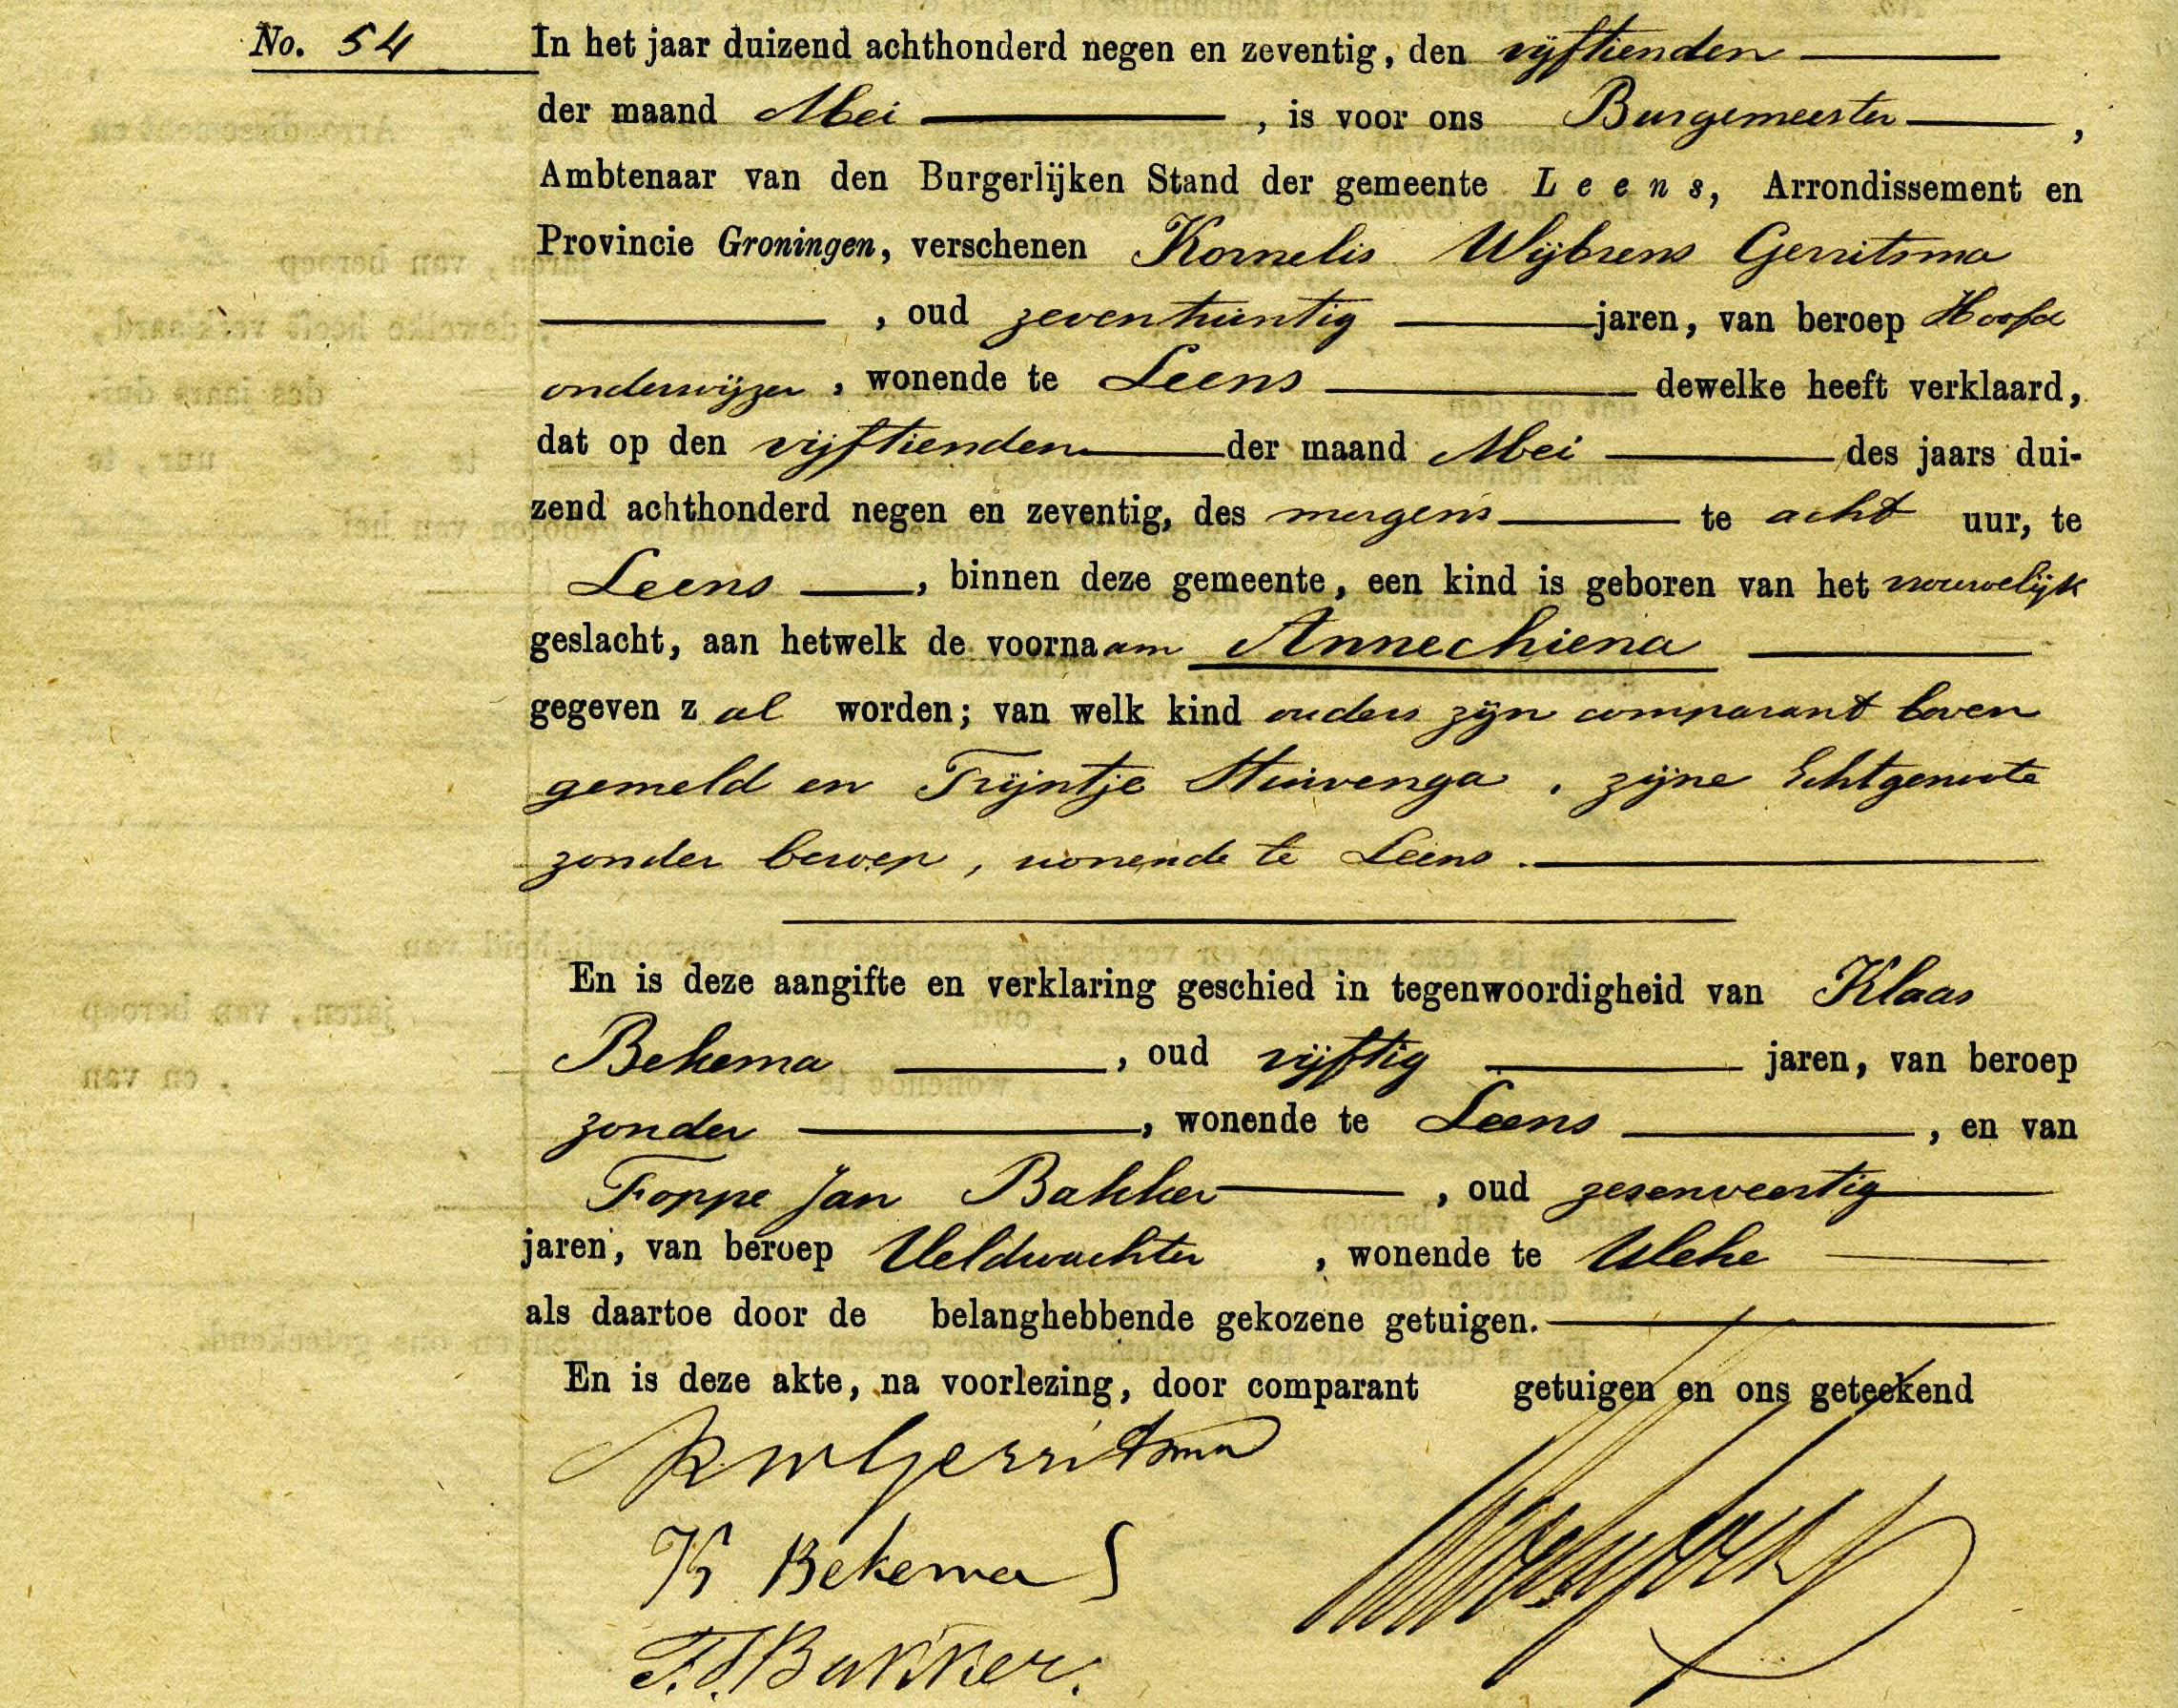 No. 54
In het jaar duizend achthonderd negen en zeventig, den vijftienden
der maand Mei , is voor ons Burgemeester ,
Ambtenaar van den Burgerlijken Stand der gemeente Leens, Arrondissement en
Provincie Groningen, verschenen Kornelis Wijbrens Gerritsma
, oud zeventwintig jaren, van beroep Hoofd
onderwijzer , wonende te Leens dewelke heeft verklaard,
dat op den vijftienden der maand Mei des jaars dui-
zend achthonderd negen en zeventig, des morgens te acht uur, te
Leens , binnen deze gemeente, een kind is geboren van het vrouwelijk
geslacht, aan hetwelk de voornaam Annechiena
gegeven zal worden; van welk kind ouders zijn comparant boven
gemeld en Trijntje Huivenga , zijne Echtgenoote
zonder beroep, wonende te Leens .
En is deze aangifte en verklaring geschied in tegenwoordigheid van Klaas
Bekema , oud vijftig jaren, van beroep
zonder , wonende te Leens , en van
Foppe Jan Bakker , oud zesenveertig
jaren, van beroep Veldwachter , wonende te Wehe
als daartoe door de belanghebbende gekozene getuigen.
En is deze akte, na voorlezing, door comparant getuigen en ons geteekend
KWGerritsma
K Bekema
F.J. Bakker.